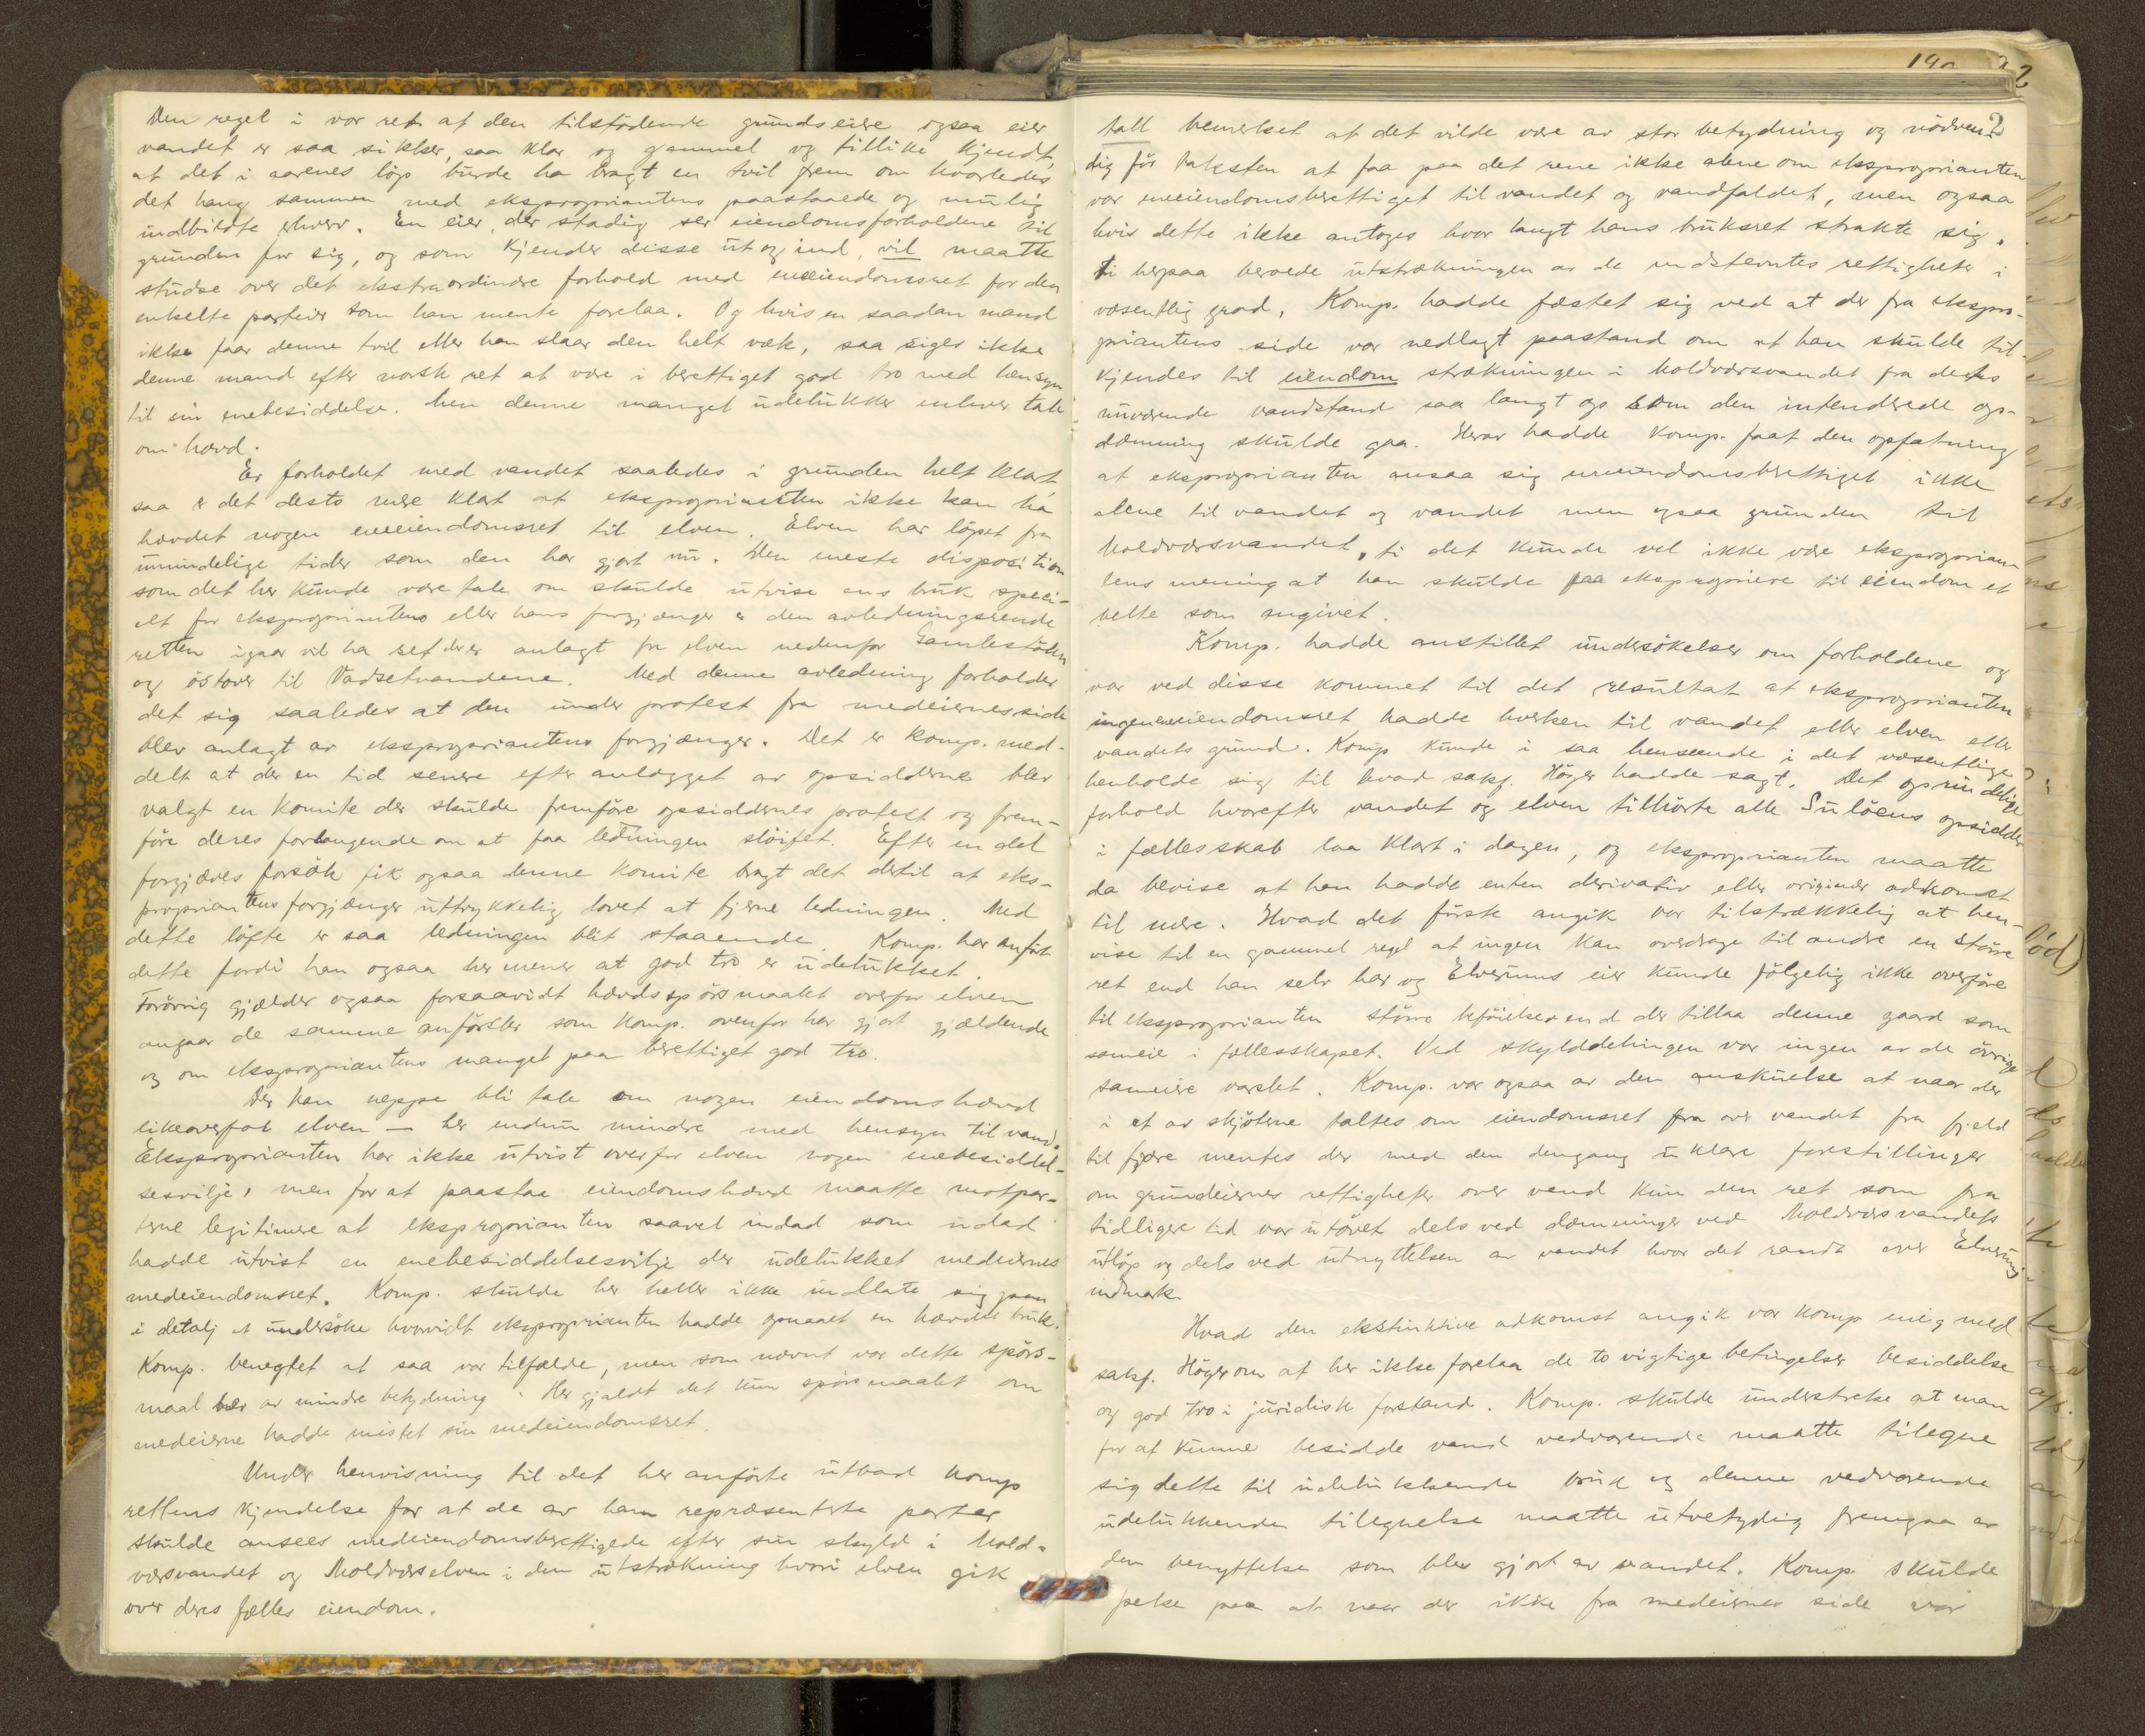 Den regel i vor ret at den tilstødende grundseier ogsaa eier
vandet er saa sikker, saa klar og gammel og tillike kjendt,
at det i aarenes löp burde ha bragt en tvil frem om hvorledes
det hang sammen med eksproprianten paastaaede og mulig
indbildte erhverv. En eier, der stadig ser eiendomsforholdene til
grunden for sig, og som kjender disse ut og ind, vil maatte
studse over det ekstraordinære forhold med eneeiendomsret for den
enkelte parteier som han mente forelaa. Og hvis en saadan mand
ikke faar denne tvil eller han slaar den helt væk, saa siges ikke
denne mand efter norsk ret at være i berettiget god tro med hensyn
til sin enebesiddelse. Men denne mangel udelukker enhver tale
om hævd.
Er forholdet med vandet saaledes i grunden helt klart
saa er det desto mere klart at eksproprianten ikke kan ha
hævdet nogen eneeiendomsret til elven. Elven har löpet fra
umindelige tider som den har gjort nu. Den eneste disposition
som det her kunde være tale om skulde utvise ens bruk speci-
elt for ekspropriantens eller hans forgjænger er den avledningsrende
retten igaar vil ha set der er anlagt fra elven nedenfor Gamlestölen
og östover til Vadsetvandene. Med denne avledning forholder
det sig saaledes at den under protest fra medeiernes side
blev anlagt av ekspropriantens forgjænger. Det er komp. med-
delt at der en tid senere efter anlægget av opsidderne blev
valgt en komite der skulde fremföre opsiddernes protest og frem-
före deres forlangende om at faa ledningen slöifet. Efter en del
forgjæves forsök fik ogsaa denne komite bragt det dertil at eks-
propriantens forgjænger uttrykkelig lovet at fjerne ledningen. Med
dette löfte er saa ledningen blit staaende. Komp. har anfört
dette fordi han ogsaa her mener at god tro er udelukket.
Forövrig gjælder ogsaa forsaavidt hævdsspörsmaalet overfor elven
angaar de samme anförsler som Komp. ovenfor har gjort gjældende
og om ekspropriantens mangel paa berettiget god tro.
Der kan neppe bli tale om nogen eiendomshævd
likeoverfor elven – her endnu mindre med hensyn til vand.
Eksproprianten har ikke utvist overfor elven nogen enebesiddel-
sesvilje, men for at paastaa eiendomshævd maatte motpar-
terne legitimere at eksproprianten saavel indad som udad
hadde utvist en enebesiddelsesvilje der udelukket medeiernes
medeiendomsret. Komp. skulde her heller ikke indlate sig paa
i detalj at undersöke hvorvidt eksproprianten hadde opnaaet en hævdet bruk.
Komp. benegtet at saa var tilfælde, men som nævnt var dette spörs-
maal her av mindre betydning. Her gjaldt det kun spörsmaalet om
medeierne hadde mistet sin medeiendomsret.
Under henvisning til det her anförte utbad komp
rettens kjendelse for at de av ham repræsenterte parter
skulde ansees medeiendomsberettigede efter sin skyld i Mold-
værsvandet og Moldværselven i den utstrækning hvori elven gik
over deres fælles eiendom.
2
tall bemerket at det vilde være av stor betydning og nödven-
dig för taksten at faa paa det rene ikke alene om eksproprianten
var eneeiendomsberettiget til vandet og vandfaldet, men ogsaa
hvis dette ikke antoges hvor langt hans bruksret strakte sig,
ti herpaa beroede utstrækningen av de indstevntes rettigheter i
væsentlig grad. Komp. hadde fæstet sig ved at der fra ekspro-
priantens side var nedlagt paastand om at han skulde til-
kjendes til eiendom strækningen i Moldværsvandet fra dets
nuværende vandstand saa langt op som den intenderede op-
dæmning skulde gaa. Herav hadde Komp. faat den opfatning
at eksproprianten ansaa sig eneeiendomsberettiget ikke
alene til vandet og vandet men ogsaa grunden til
Moldværsvandet, ti det kunde vel ikke være eksproprian-
tens mening at han skulde faa ekspropriere til eiendom et
belte som angivet.
Komp. hadde anstillet undersökelser om forholdene og
var ved disse kommet til det resultat at eksproprianten
ingen eneeiendomsret hadde hverken til vandet eller elven eller
vandets grund. Komp kunde i saa henseende i det væsentlige
henholde sig til hvad sakf. Höyer hadde sagt. Det oprindelige
forhold hvorefter vandet og elven tilhörte alle Sulöens opsiddere
i fællesskab laa klart i dagen, og eksproprianten maatte
da bevise at han hadde enten derivativ eller originær adkomst
til mere. Hvad det förste angik var tilstrækkelig at hen-
vise til en gammel regel at ingen kan overdrage til andre en större
ret end han selv har og Elverums eier kunde fölgelig ikke overföre
til eksproprianten större beföielser end der tillaa denne gaard som
sameie i fællesskapet. Ved skylddelingen var ingen av de övrige
sameiere varslet. Komp. var ogsaa av den anskuelse at naar der
i et av skjöterne taltes om eiendomsret fra over vandet fra fjeld
til fjære mentes der med den dengang uklare forestillinger
om grundeiernes rettigheter over vand kun den ret som fra
tidligere tid var utövet dels ved dæmninger ved Moldværsvandets
utlöp og dels ved utnyttelsen av vandet hvor det randt over Elverums
indmark.
Hvad den ekstinktive adkomst angik var komp enig med
sakf. Höyer om at her ikke forelaa de to vigtige betingelser besiddelse
og god tro i juridisk forstand. Komp. skulde understreke at man
for at kunne besidde vand vedvarende maatte tilegne
sig dette til udelukkende bruk og denne vedvarende
udelukkende tilegnelse maatte utvetydig fremgaa av
den benyttelse som blev gjort av vandet. Komp. skulde
peke paa at naar der ikke fra medeiernes side var